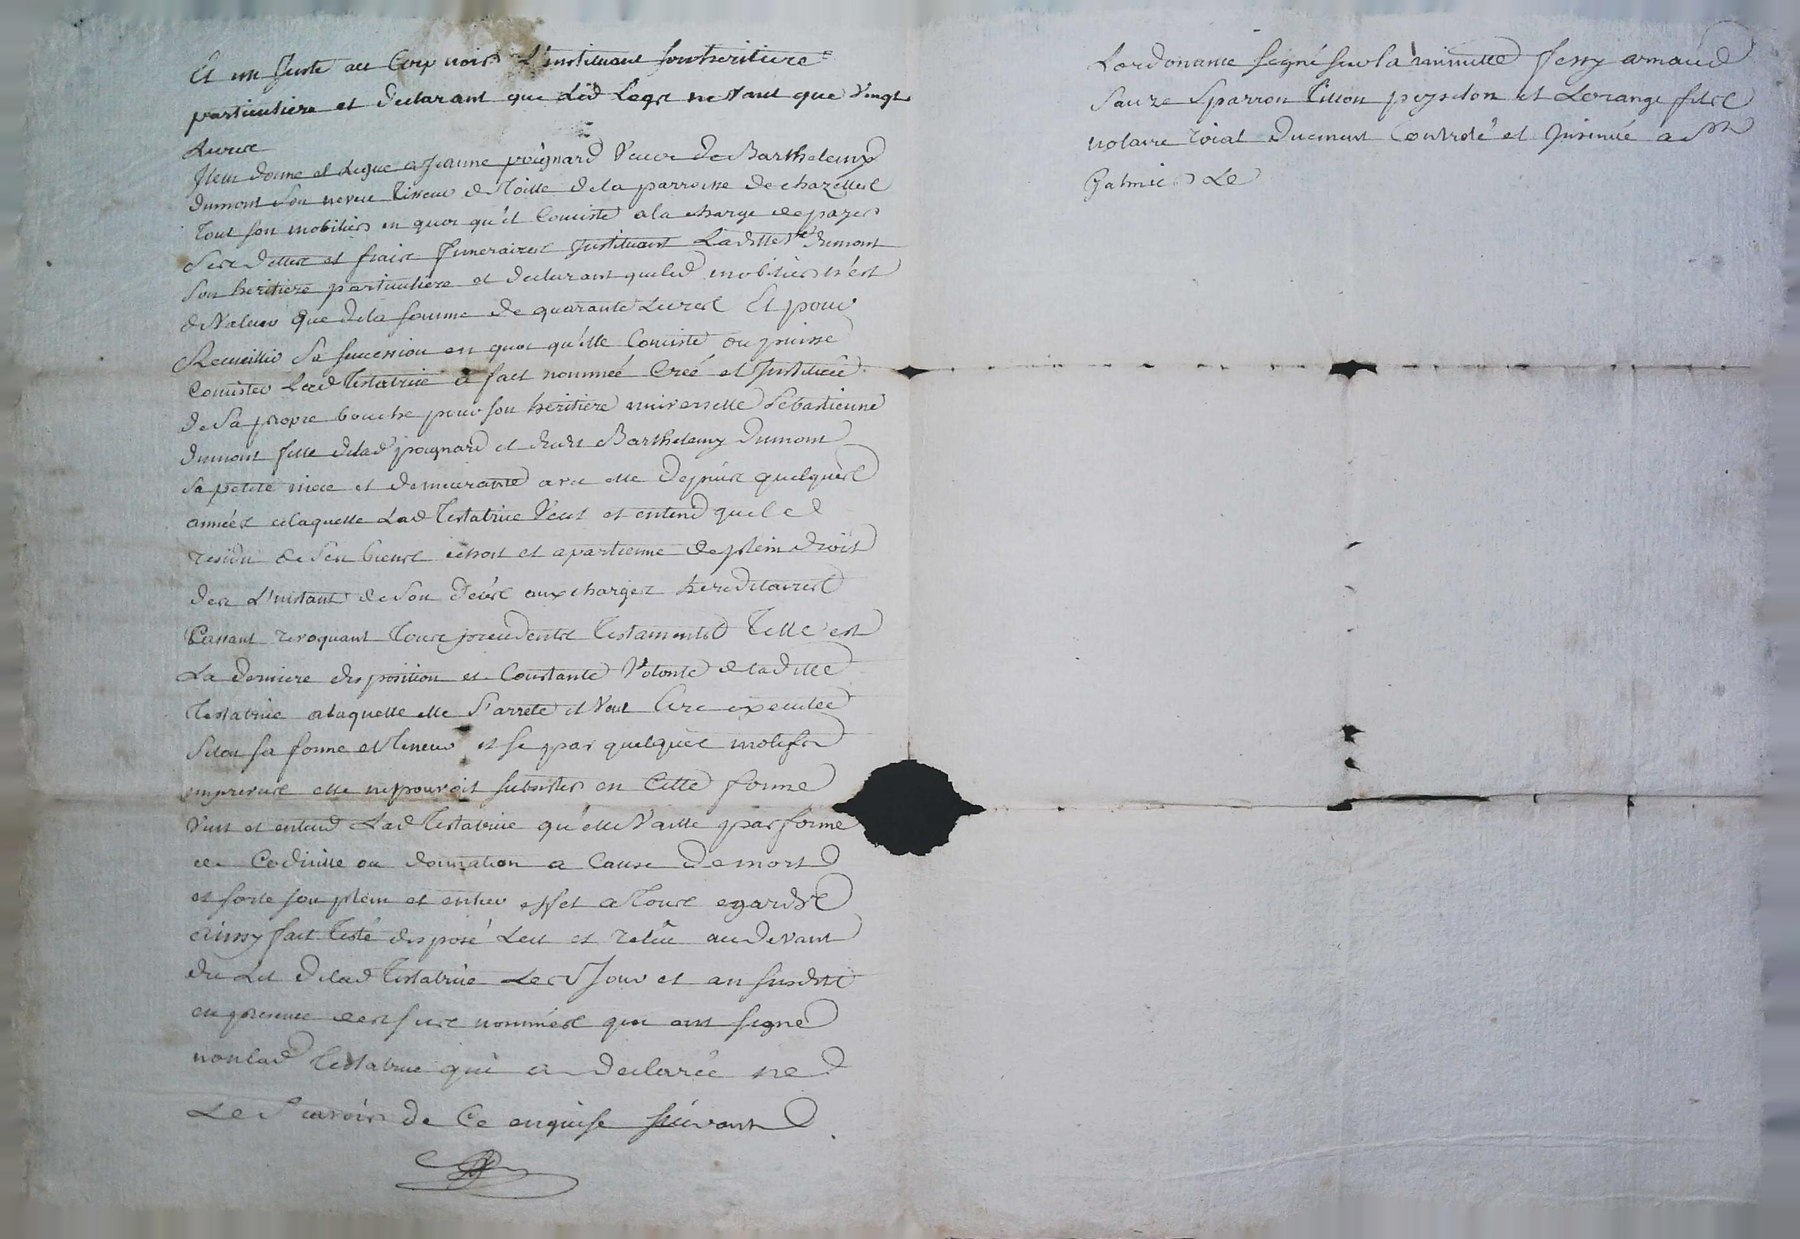 Et un Juste au Corp noir L'instituant son heritiere
particuliere et declarant que Led Legs ne Vaut que Vingt
Livres
Item donne et Legue a Jeanne poignard Veuve de Barthelemy
dumont Son neveu Tisseur de Toille de la parroisse de chazelles
Tout son mobilier en quoi qu'il Consiste a la charge de payer
Ses dettes et frais funeraires Instituant Laditte ve dumont
Son heritiere particuliere et declarant que led mobilier n'est
de Valeur Que de la somme de quarante Livres Et pour
Recueillir Sa succession en quoi qu'elle Consiste ou puisse
Consister Lad Testatrice a fait nommée Créé et Instituée
de Sa propre bouche pour son heritiere universelle Sebastienne
dumont fille de lad poignard et dudt Barthelemy dumont
Sa petite niece et demeurante avec elle Depuis quelques
années a laquelle Lad Testatrice Veut et entend que le
residu de Ses biens echoit et apartienne de plein droit
des L'instant de Son decès aux charges hereditaires
Cassant revoquant Tous precedents Testaments Telle est
La derniere disposition et Constante Volonté de laditte
Testatrice a laquelle elle S'arrete et Veut être executée
Selon sa forme et Teneur et si par quelques motifs
imprevus elle ne pouvoit subsister en Cette forme
Veut et entend Lad Testatrice qu'elle Vaille par forme
de Codicille ou donnation a Cause de mort
et sorte son plein et entier effet a Tous egards
ainsy fait Testé disposé Leu et relû au devant
du Lit de lad Testatrice Les Jour et an susdits
en presence des sus nommés qui ont signé
non lad Testatrice qui a declarée ne
Le Scavoir de Ce enquise suivant
Lordonance signé sur la minutte Jessy arnaud
Sauze Sparron Tisson peyselon et Levrange fils
notaire roial duement Controlé et Insinué a St
Galmier Le